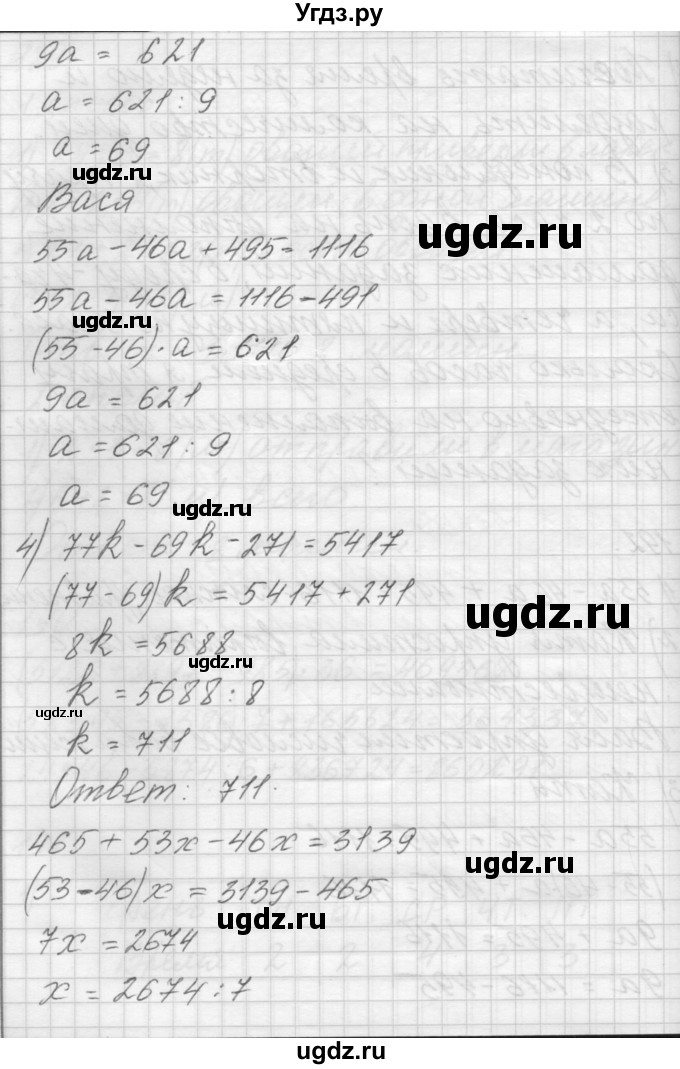 Угдз.ру
9a = 621
a = 621 : 9
a = 69
ugdz.ru
Вася
ugdz.ru
55a - 46a + 495 = 1116
55a - 46a = 1116 - 491
ugdz.ru
(55 - 46) · a = 621
9a = 621
a = 621 : 9
a = 69
ugdz.ru
4) 77k - 69k - 271 = 5417
(77 - 69)k = 5417 + 271
ugdz.ru
8k = 5688
ugdz.ru
k = 5688 : 8
ugdz.ru
k = 711
Ответ: 711.
465 + 53x - 46x = 3139
ugdz.ru
(53 - 46)x = 3139 - 465
ugdz.ru
7x = 2674
x = 2674 : 7
ugdz.ru